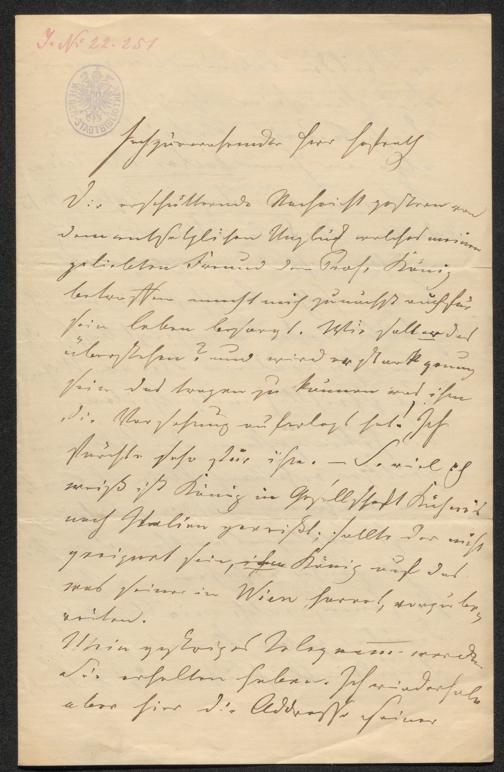 J. No 22.251
WIENER STADTBIBLIOTHEK
Hochzuverehrender Herr Hofrath
Die erschütternde Nachricht gestern von
dem entsetzlichen Unglück welches meinen
geliebten Freund den Prof. König
betroffen macht mich zunächst auch für
sein Leben besorgt. Wie soll er das
überstehen? und wird er stark genug
sein das tragen zu können was ihm
die Vorsehung auferlegt hat! Ich
fürchte sehr für ihn. – So viel ich
weiß ist König in Gesellschaft
nach Italien gereist; sollte der nicht
geeignet sein, ihm König auf das
was seiner in Wien harret, vorzube
reiten.
Mein gestriges Telegramm werden
Sie erhalten haben. Ich wiederhole
aber hier die Addresse seiner